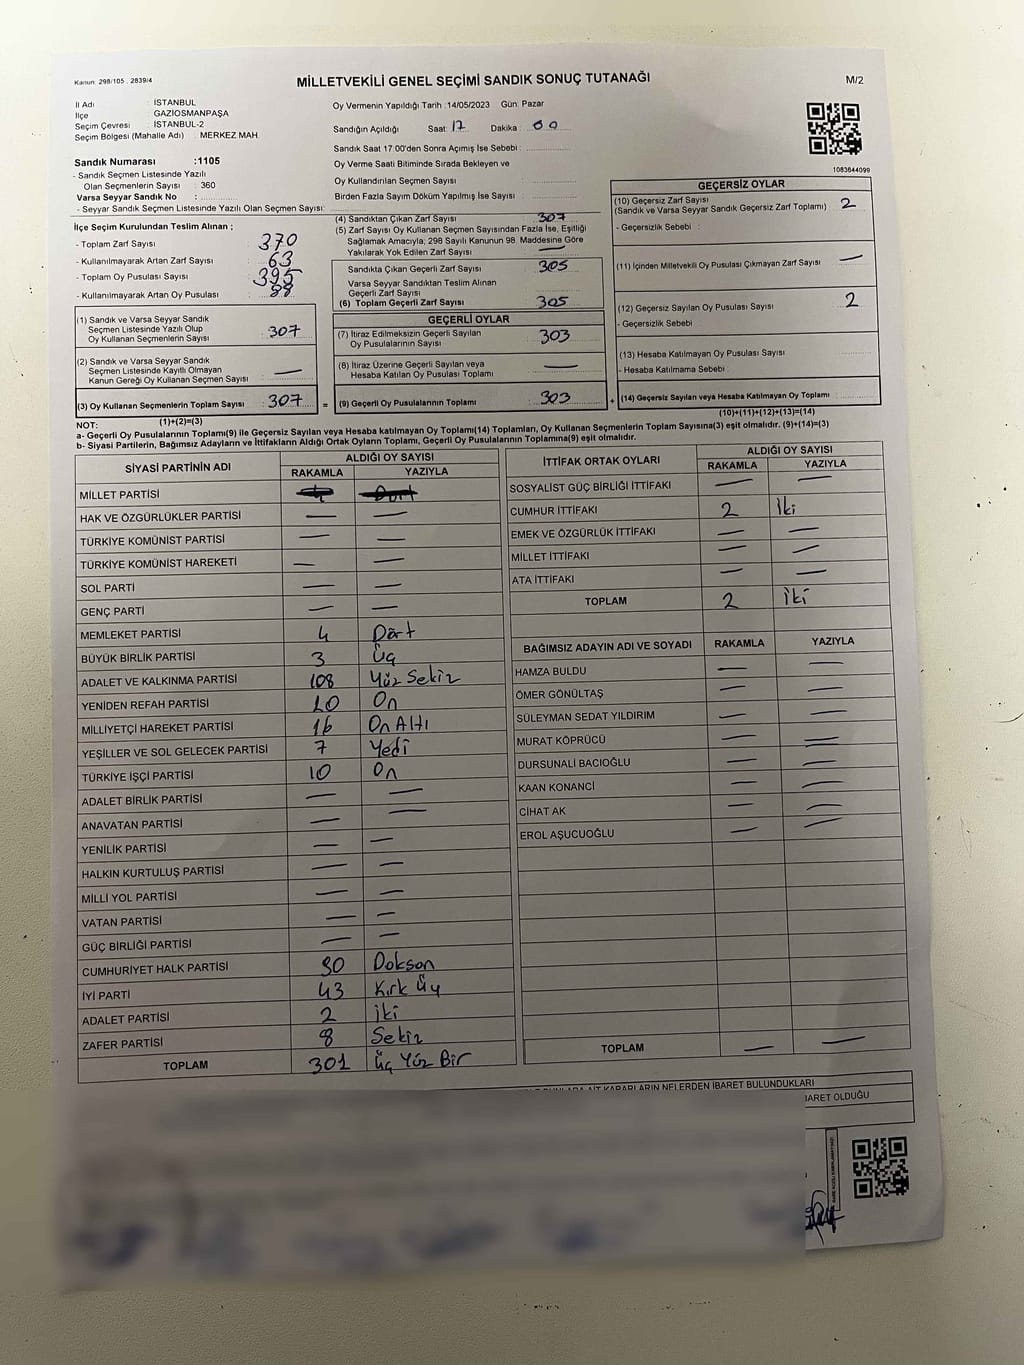 Kanun: 298/105 , 2839/4
MİLLETVEKİLİ GENEL SEÇİMİ SANDIK SONUÇ TUTANAĞI
M/2
İl Adı : İSTANBUL
İlçe : GAZİOSMANPAŞA
Seçim Çevresi : İSTANBUL-2
Seçim Bölgesi (Mahalle Adı) : MERKEZ MAH.
Sandık Numarası :1105
- Sandık Seçmen Listesinde Yazılı
Olan Seçmenlerin Sayısı : 360
Varsa Seyyar Sandık No :
- Seyyar Sandık Seçmen Listesinde Yazılı Olan Seçmen Sayısı:
Oy Vermenin Yapıldığı Tarih :14/05/2023 Gün: Pazar
Sandığın Açıldığı Saat: 17 Dakika : 00
Sandık Saat 17:00'den Sonra Açımış İse Sebebi :
Oy Verme Saati Bitiminde Sırada Bekleyen ve
Oy Kullandırılan Seçmen Sayısı
Birden Fazla Sayım Döküm Yapılmış İse Sayısı :
1083644099
İlçe Seçim Kurulundan Teslim Alınan ;
- Toplam Zarf Sayısı : 370
- Kullanılmayarak Artan Zarf Sayısı : 63
- Toplam Oy Pusulası Sayısı : 395
- Kullanılmayarak Artan Oy Pusulası : 88
(1) Sandık ve Varsa Seyyar Sandık
Seçmen Listesinde Yazılı Olup
Oy Kullanan Seçmenlerin Sayısı : 307
(2) Sandık ve Varsa Seyyar Sandık
Seçmen Listesinde Kayıtlı Olmayan
Kanun Gereği Oy Kullanan Seçmen Sayısı : —
(3) Oy Kullanan Seçmenlerin Toplam Sayısı : 307 =
(1)+(2)=(3)
(4) Sandıktan Çıkan Zarf Sayısı : 307
(5) Zarf Sayısı Oy Kullanan Seçmen Sayısından Fazla İse, Eşitliği
Sağlamak Amacıyla; 298 Sayılı Kanunun 98. Maddesine Göre
Yakılarak Yok Edilen Zarf Sayısı : —
Sandıkta Çıkan Geçerli Zarf Sayısı : 305
Varsa Seyyar Sandıktan Teslim Alınan
Geçerli Zarf Sayısı :
(6) Toplam Geçerli Zarf Sayısı : 305
GEÇERLİ OYLAR
(7) İtiraz Edilmeksizin Geçerli Sayılan
Oy Pusulalarının Sayısı : 303
(8) İtiraz Üzerine Geçerli Sayılan veya
Hesaba Katılan Oy Pusulası Toplamı : —
(9) Geçerli Oy Pusulalarının Toplamı : 303 +
GEÇERSİZ OYLAR
(10) Geçersiz Zarf Sayısı
(Sandık ve Varsa Seyyar Sandık Geçersiz Zarf Toplamı) : 2
- Geçersizlik Sebebi :
(11) İçinden Milletvekili Oy Pusulası Çıkmayan Zarf Sayısı : —
(12) Geçersiz Sayılan Oy Pusulası Sayısı : 2
- Geçersizlik Sebebi
(13) Hesaba Katılmayan Oy Pusulası Sayısı :
- Hesaba Katılmama Sebebi :
(14) Geçersiz Sayılan veya Hesaba Katılmayan Oy Toplamı :
(10)+(11)+(12)+(13)=(14)
NOT:
a- Geçerli Oy Pusulalarının Toplamı(9) ile Geçersiz Sayılan veya Hesaba katılmayan Oy Toplamı(14) Toplamları, Oy Kullanan Seçmenlerin Toplam Sayısına(3) eşit olmalıdır. (9)+(14)=(3)
b- Siyasi Partilerin, Bağımsız Adayların ve İttifakların Aldığı Ortak Oyların Toplamı, Geçerli Oy Pusulalarının Toplamına(9) eşit olmalıdır.
SİYASİ PARTİNİN ADI
ALDIĞI OY SAYISI
RAKAMLA YAZIYLA
MİLLET PARTİSİ 4 Dört
HAK VE ÖZGÜRLÜKLER PARTİSİ — —
TÜRKİYE KOMÜNİST PARTİSİ — —
TÜRKİYE KOMÜNİST HAREKETİ — —
SOL PARTİ — —
GENÇ PARTİ — —
MEMLEKET PARTİSİ 4 Dört
BÜYÜK BİRLİK PARTİSİ 3 Üç
ADALET VE KALKINMA PARTİSİ 108 Yüz Sekiz
YENİDEN REFAH PARTİSİ 10 On
MİLLİYETÇİ HAREKET PARTİSİ 16 On Altı
YEŞİLLER VE SOL GELECEK PARTİSİ 7 Yedi
TÜRKİYE İŞÇİ PARTİSİ 10 On
ADALET BİRLİK PARTİSİ — —
ANAVATAN PARTİSİ — —
YENİLİK PARTİSİ — —
HALKIN KURTULUŞ PARTİSİ — —
MİLLİ YOL PARTİSİ — —
VATAN PARTİSİ — —
GÜÇ BİRLİĞİ PARTİSİ — —
CUMHURİYET HALK PARTİSİ 90 Dokson
İYİ PARTİ 43 Kırk Üç
ADALET PARTİSİ 2 İki
ZAFER PARTİSİ 8 Sekiz
TOPLAM 301 Üç Yüz Bir
İTTİFAK ORTAK OYLARI
ALDIĞI OY SAYISI
RAKAMLA YAZIYLA
SOSYALİST GÜÇ BİRLİĞİ İTTİFAKI — —
CUMHUR İTTİFAKI 2 İki
EMEK VE ÖZGÜRLÜK İTTİFAKI — —
MİLLET İTTİFAKI — —
ATA İTTİFAKI — —
TOPLAM 2 İki
BAĞIMSIZ ADAYIN ADI VE SOYADI RAKAMLA YAZIYLA
HAMZA BULDU — —
ÖMER GÖNÜLTAŞ — —
SÜLEYMAN SEDAT YILDIRIM — —
MURAT KÖPRÜCÜ — —
DURSUNALİ BACIOĞLU — —
KAAN KONANCİ — —
CİHAT AK — —
EROL AŞUCUOĞLU — —
TOPLAM — —
AİT KARARLARIN NELERDEN İBARET BULUNDUKLARI
BARET OLDUĞU